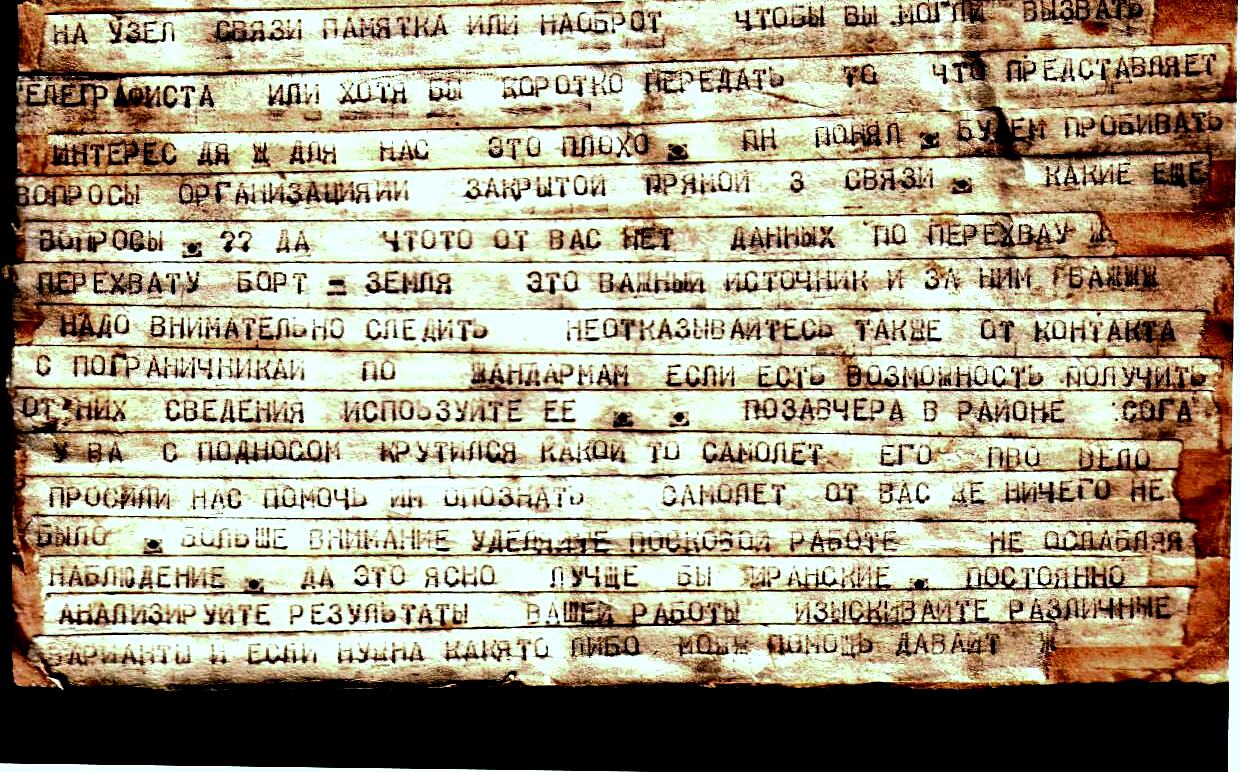 НА УЗЕЛ СВЯЗИ ПАМЯТКА ИЛИ НАОБРОТ ЧТОБЫ ВЫ МОГЛИ ВЫЗВАТЬ
ТЕЛЕГРАФИСТА ИЛИ ХОТЯ БЫ КОРОТКО ПЕРЕДАТЬ ТО ЧТО ПРЕДСТАВЛЯЕТ
ИНТЕРЕС ДЯ Ж ДЛЯ НАС ЭТО ПЛОХО . ЯН ПОНЯЛ . БУДЕМ ПРОБИВАТЬ
ВОПРОСЫ ОРГАНИЗАЦИЯИИ ЗАКРЫТОЙ ПРЯМОЙ З СВЯЗИ . КАКИЕ ЕЩЕ
ВОПРОСЫ . ?? ДА ЧТОТО ОТ ВАС НЕТ ДАННЫХ ПО ПЕРЕХВАУ Ж
ПЕРЕХВАТУ БОРТ = ЗЕМЛЯ ЭТО ВАЖНЫЙ ИСТОЧНИК И ЗА НИМ ГВАЖЖЖ
НАДО ВНИМАТЕЛЬНО СЛЕДИТЬ НЕОТКАЗЫВАЙТЕСЬ ТАКЖЕ ОТ КОНТАКТА
С ПОГРАНИЧНИКАЙ ПО ЖАНДАРМАМ ЕСЛИ ЕСТЬ ВОЗМОЖНОСТЬ ПОЛУЧИТЬ
ОТ НИХ СВЕДЕНИЯ ИСПОЬЗУЙТЕ ЕЕ . . ПОЗАВЧЕРА В РАЙОНЕ СОГА
У ВА С ПОДНОСОМ КРУТИЛСЯ КАКОЙ ТО САМОЛЕТ ЕГО ПВО ВЕЛО
ПРОСИЛИ НАС ПОМОЧЬ ИМ ОПОЗНАТЬ САМОЛЕТ ОТ ВАС ЖЕ НИЧЕГО НЕ
БЫЛО . БОЛЬШЕ ВНИМАНИЕ УДЕЛЯЙТЕ ПОСКОВОЙ РАБОТЕ НЕ ОСЛАБЛЯЯ
НАБЛЮДЕНИЕ . ДА ЭТО ЯСНО ЛУЧЩЕ БЫ ИРАНСКИЕ . ПОСТОЯННО
АНАЛИЗИРУЙТЕ РЕЗУЛЬТАТЫ ВАШЕЙ РАБОТЫ ИЗЫСКИВАЙТЕ РАЗЛИЧНЫЕ
ВАРИАНТЫ И ЕСЛИ НУЖНА КАКЯТО ЛИБО ПОМОЩЬ ДАВАЙТ Ж